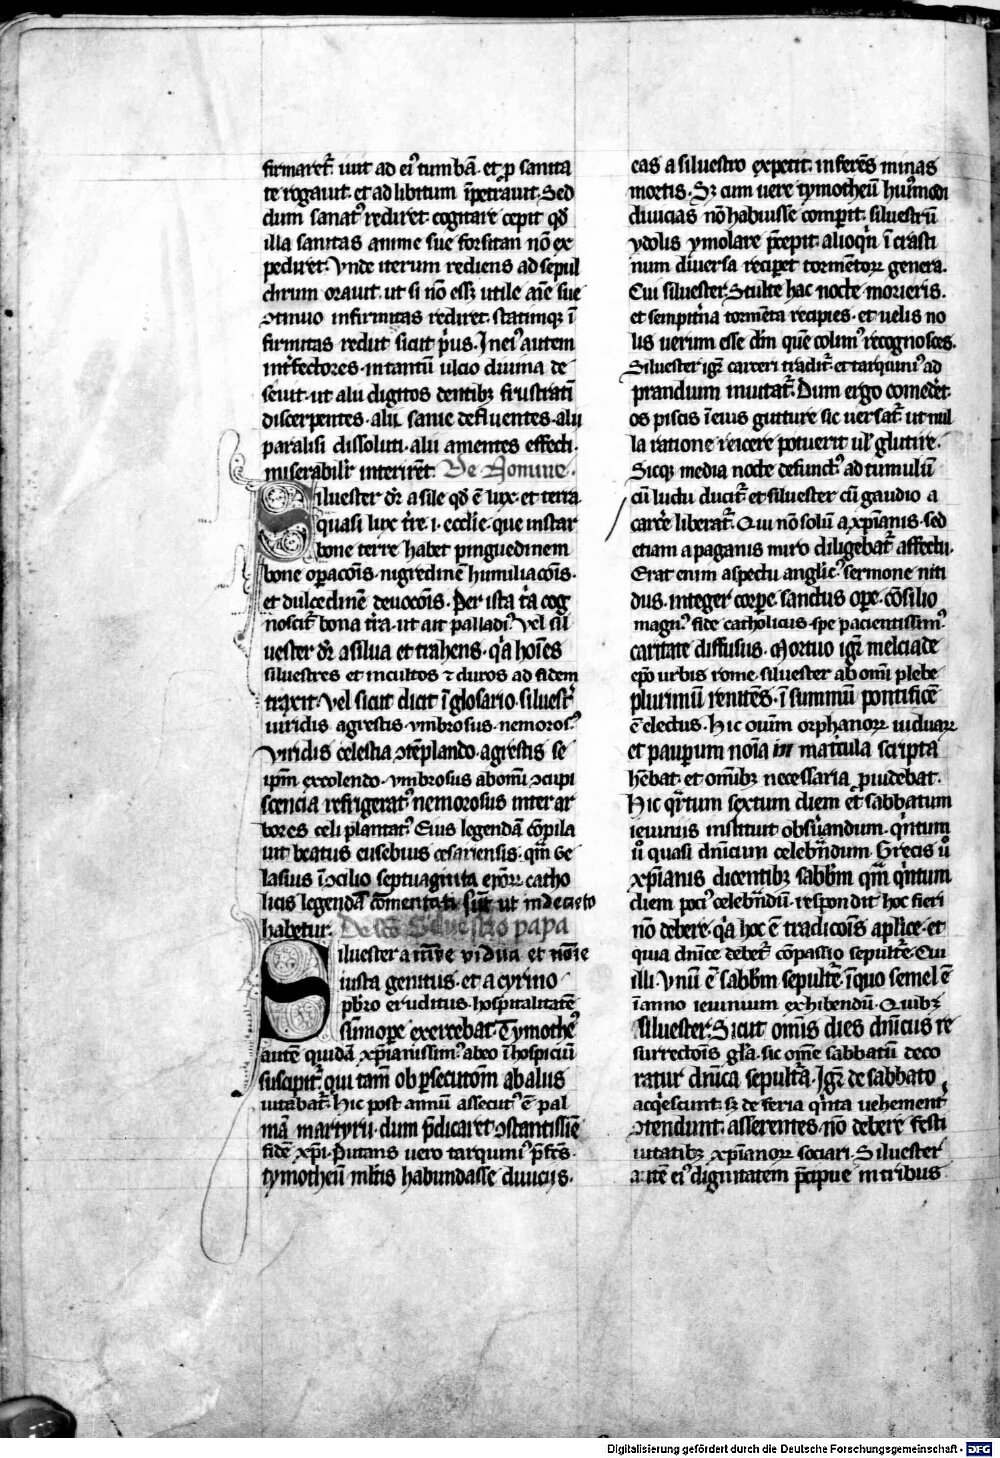 firmaret᷑. uiit ad ei᷒ tumbā. et p̱ sanita
te rogauit. et ad libitum īpetrauit. Sed
dum sanat᷒ rediret. cogitare cepit qd̄
illa sanitas anime sue forsitan nō ex
pediret. Vnde iterum rediens ad sepul
chrum orauit. ut si nō essꝫ utile aīe sue
ꝯtinuo infirmitas rediret. statimqꝫ ī
firmitas rediit sicut p̄us. In ei᷒ autem
int̄fectores. in tantū ulcio diuina de
seuit. ut alii digitos dentibꝫ frustratī
discerpentes. alii sanie defluentes. alii
paralisi dissoluti. alii amentes effecti.
miserabilit̄ interirēt. De Nomine.
Siluester dr̄ a sile qd̄ ē lux. et terra
quasi lux t̄re .i. ecclīe. que instar
bone terre habet pinguedinem
bone opacōis. nigredinē humiliacōis.
et dulcedinē deuocōis. Per ista t̄a cog
noscit᷑ bona t̄ra. ut ait palladi᷒. Vel sil
uester dr̄ a silua et trahens. qa hoīes
siluestres et incultos ⁊ duros ad fidem
traxit. Vel sicut dicit̄ ī glosario. siluest̄
uiridis agrestis. vmbrosus. nemoros᷒.
Viridis celestia ꝯtēplando. agrestis se
ipm̄ excolendo. vmbrosus ab omī ꝯcupi
scencia refrigerat᷒. nemorosus inter ar
bores celi plantat᷒. Eius legendā ꝯpila
uit beatus eusebius cesariensis. qm̄ Ge
lasius ī ꝯcilio septuaginta ep̄orꝝ catho
licis legendā cōmentati sūt ut in decreto
habetur. De ss̄ Siluestro papa
Siluester a mr̄e vidua et nōīe
iusta genitus. et a cyrino
p̄bro eruditus. hospitalitatē
sūmope exercebat. Tymothe᷒
autē quidā xp̄ianissim᷒. ab eo ī hospiciū
suscipit᷑. qui tam̄ ob p̱secutōm ab aliis
uitabat᷑. hic post annū assecut᷒ ē pal
mā martyrii. dum p̄dicaret ꝯstantissīe
fidē xp̄i. Putans uero tarquini᷒ p̄fc̄s.
tymotheū ml̄tis habundasse diuiciis.
eas a siluestro expetit. inferēs minas
mortis. Sꝫ cum uere tymotheū hui᷒modi
diuicias nō habuisse comperit. siluestrū
ydolis ymolare p̄cepit. alioqn̄ ī crasti
num diuersa reciperet tormētorꝝ genera.
Cui siluester. Stulte hac nocte morieris.
et sempitna tormēta recipies. et uelis no
lis uerum esse dm̄ quē colim᷒ recognosces.
Siluester igr̄ carceri tradit᷑. et tarquini᷒ ad
prandium inuitat᷑. Dum ergo comedet.
os piscis ī eius gutture sic uersat᷑. ut nul
la ratione reicere potuerit ul̄ glutire.
Sicqꝫ media nocte defunct᷒ ad tumulū
cū luctu ducit᷑. et siluester cū gaudio a
carce liberat᷑. Qui nō solū a xp̄ianis. sed
etiam a paganis miro diligebat᷑ affectu.
Erat enim aspectu anglic᷒. sermone niti
dus. integer corpe. sanctus ope. cōsilio
magn᷒. fide catholicus. spe pacientissim᷒.
caritate diffusus. Mortuo igr̄ melciade
ep̄o urbis rome. siluester ab omī plebe
plurimū renitēs. ī summū pontificē
ē electus. hic ouim orphanorꝝ uiduarꝝ
et pauperum noīa in matcula scripta
hēbat. et omībꝫ necessaria p̱uidebat.
Hic qrtum sextum diem et sabbatum
ieiuniis instituit obsuandum. qntum
u᷒o quasi dn̄icum celebrādum. Grecis u᷒o
xp̄ianis dicentibꝫ sabbm̄ qm̄ qntum
diem poci᷒ celebrādū. respondit hoc fieri
nō debere. qa hoc ē tradicōis aplīce. et
quia dn̄ice debet᷑ cōpassio sepultē. Cui
illi. Vnū ē sabbm̄ sepultē. ī quo semel ē
ī anno ieiunium exhibendū. Quibꝫ
siluester. Sicut omīs dies dn̄icus re
surrectōis gl̄a. sic om̄e sabbatū deco
ratur dn̄ica sepult̄a. Igr̄ de sabbato
acqescunt. sꝫ de feria qnta uehement
ꝯtendunt. asserentes. nō debere festi
uitatibꝫ xp̄ianorꝝ sociari. Siluester
autē ei᷒ dignitatem p̄cipue in tribus
Digitalisierung gefördert durch die Deutsche Forschungsgemeinschaft - DFG